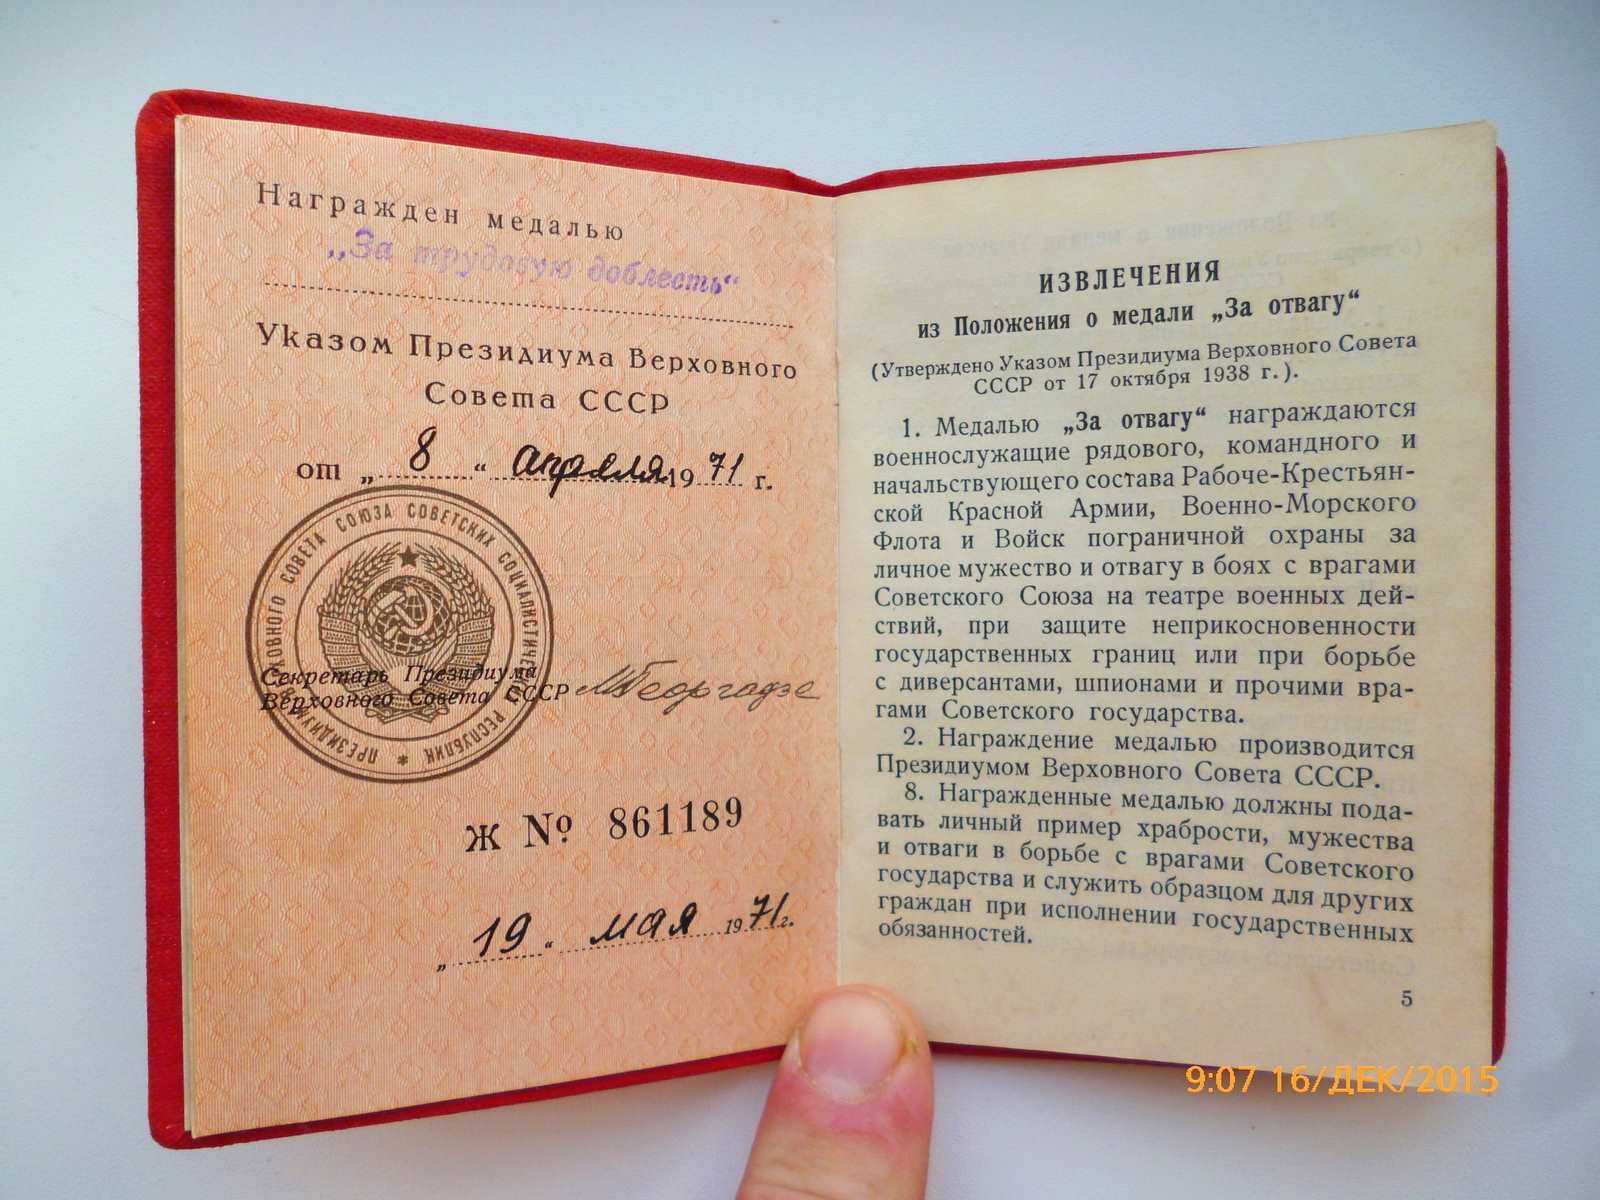 Награжден медалью
„За трудовую доблесть“
Указом Президиума Верховного
Совета СССР
от „ 8 “ апреля 1971 г.
ПРЕЗИДИУМ ВЕРХОВНОГО СОВЕТА СОЮЗА СОВЕТСКИХ СОЦИАЛИСТИЧЕСКИХ РЕСПУБЛИК
Секретарь Президиума
Верховного Совета СССР МГеоргадзе
Ж № 861189
„ 19 “ мая 1971 г.
ИЗВЛЕЧЕНИЯ
из Положения о медали „За отвагу“
(Утверждено Указом Президиума Верховного Совета
СССР от 17 октября 1938 г.).
1. Медалью „За отвагу“ награждаются
военнослужащие рядового, командного и
начальствующего состава Рабоче-Крестьян-
ской Красной Армии, Военно-Морского
Флота и Войск пограничной охраны за
личное мужество и отвагу в боях с врагами
Советского Союза на театре военных дей-
ствий, при защите неприкосновенности
государственных границ или при борьбе
с диверсантами, шпионами и прочими вра-
гами Советского государства.
2. Награждение медалью производится
Президиумом Верховного Совета СССР.
8. Награжденные медалью должны пода-
вать личный пример храбрости, мужества
и отваги в борьбе с врагами Советского
государства и служить образцом для других
граждан при исполнении государственных
обязанностей.
5
9:07 16/ДЕК/2015